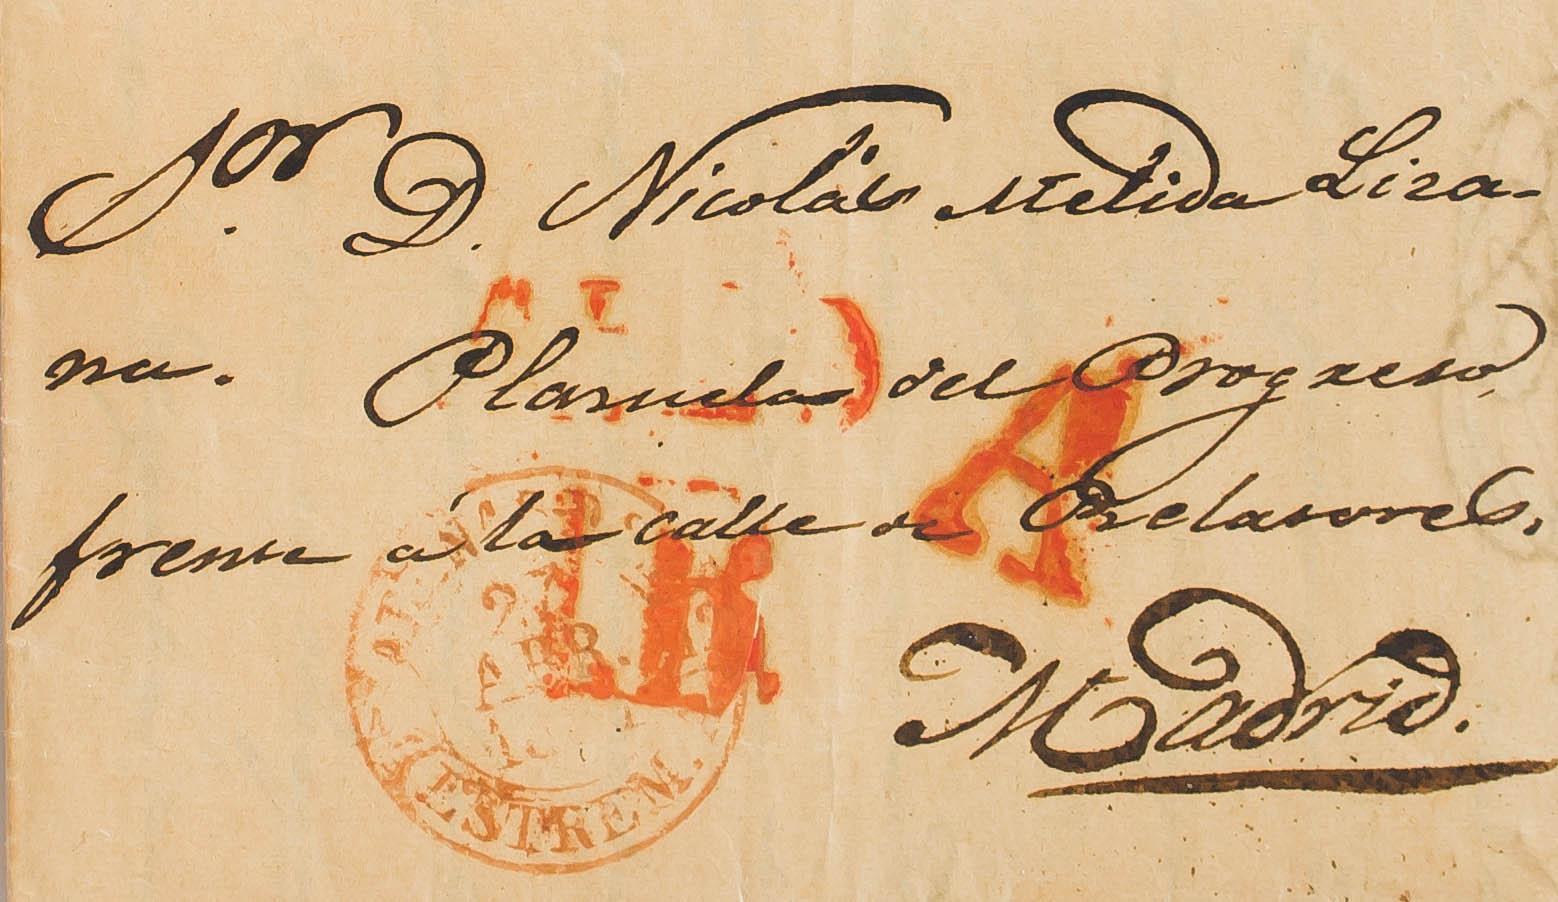 S.or D. Nicolás Melida Liza-
na. Plazuela del Progreso,
frente á la calle de Relatores,
Madrid.
A
2
ABR.
ESTREM.